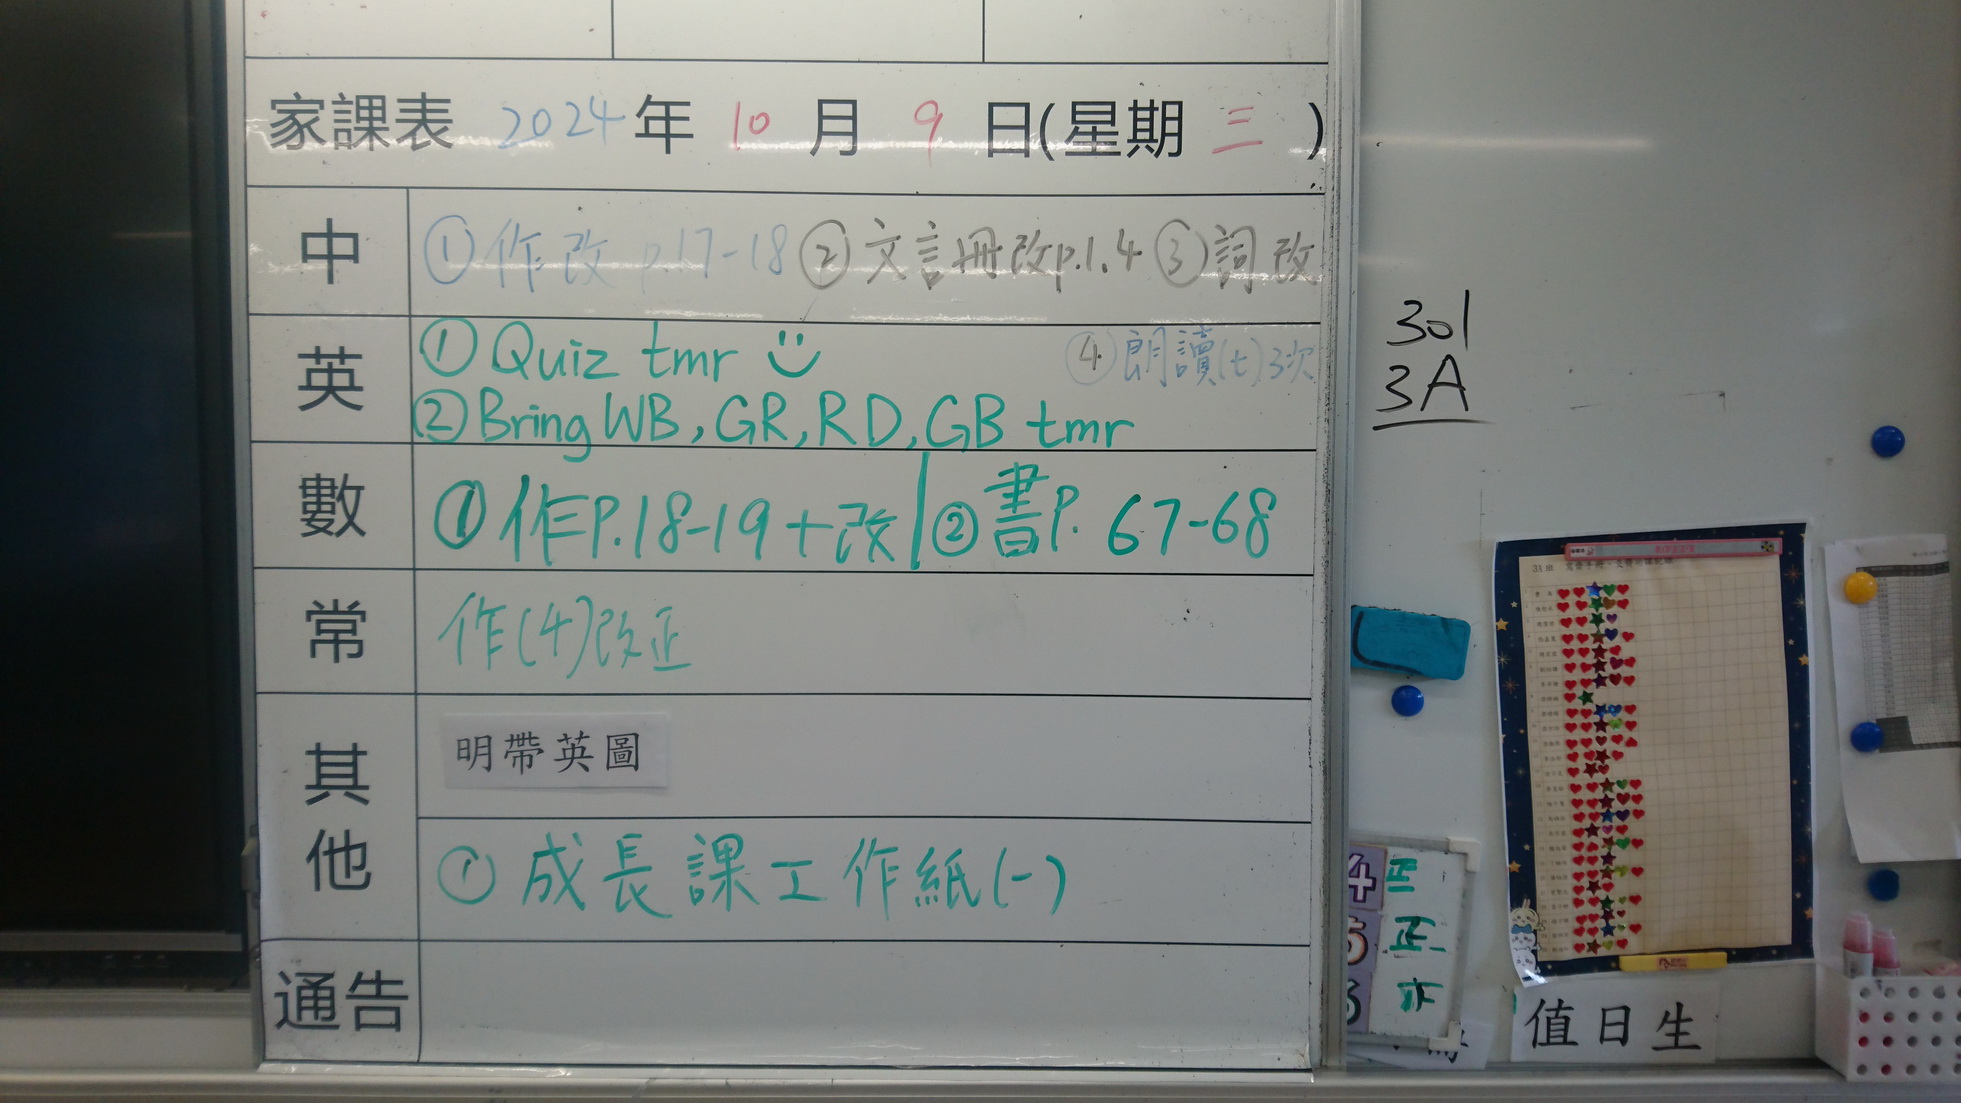 家課表 2024年 10月 9日(星期三)
中 ①作改 p.17-18 ②文言冊改p.1.4 ③詞改
④朗讀(七)3次
英 ①Quiz tmr
②Bring WB, GR, RD, GB tmr
數 ①作P.18-19+改 ②書P. 67-68
常 作(4)改正
其他 明帶英圖
①成長課工作紙(一)
通告
301
3A
4 正
5 正
6
值日生